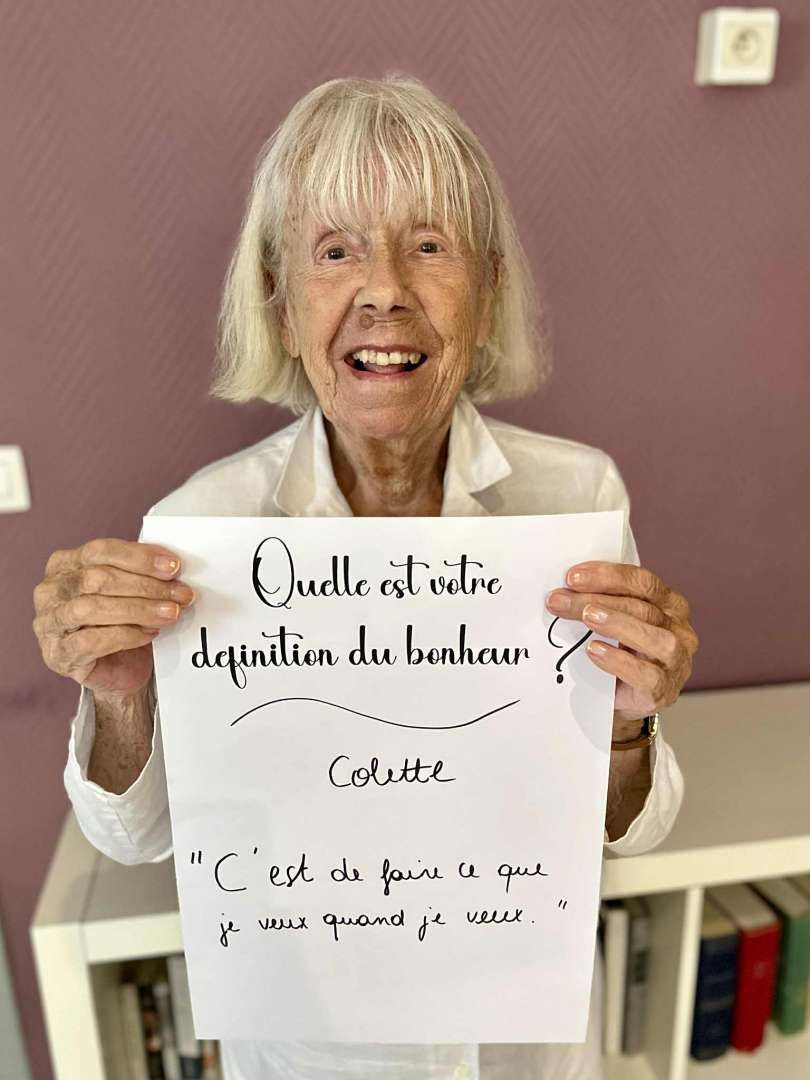 Quelle est votre
definition du bonheur ?
Colette
" C'est de faire ce que
je veux quand je veux. "